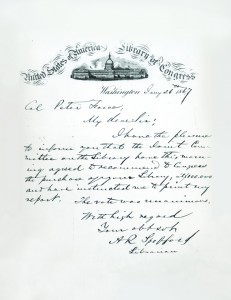 United States of America Library of Congress
Washington Jany 26 1867
Col. Peter Force
My dear Sir;
I have the pleasure
to inform you that the Joint Com
mittee on the Library have this mor
ning agreed to recommend to Congress
the purchase of your Library,
and have instructed me to print my
report. The vote was unanimous.
With high regard
Your obt svt
A R Spofford
Librarian